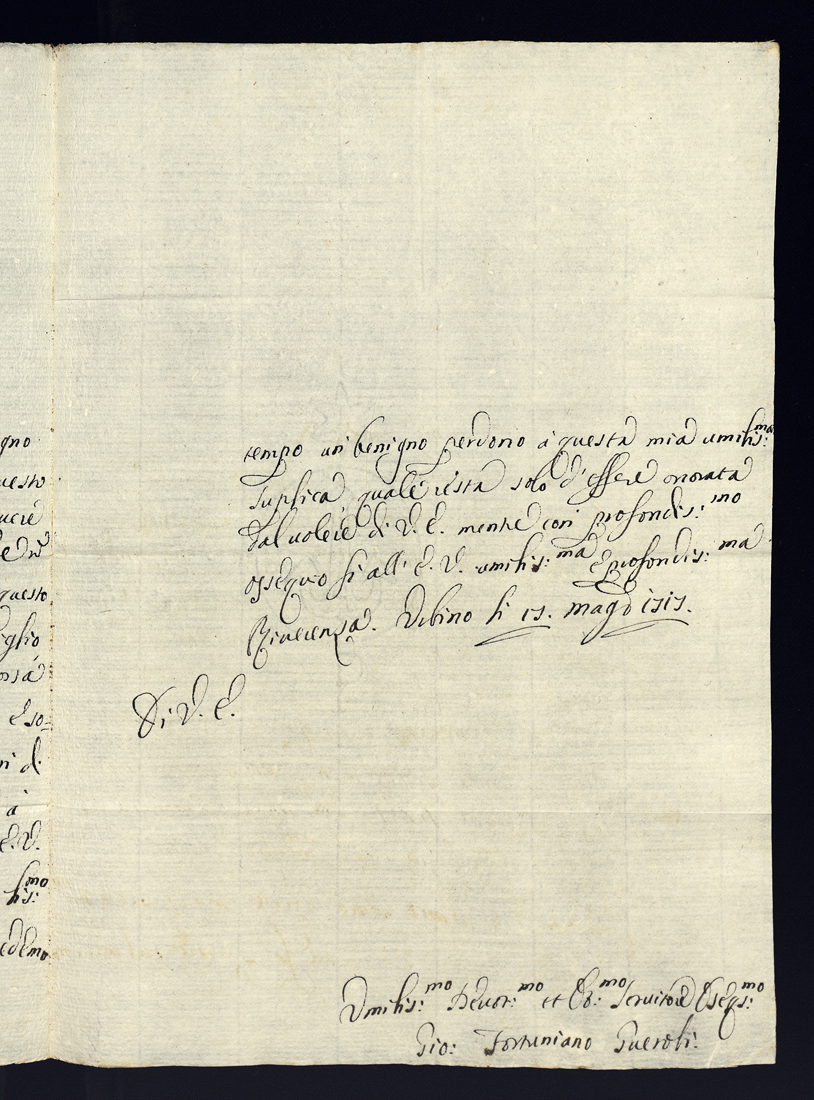 gno
uesto
questo
iglio
à
E. V.
lis:mo
tempo un benigno perdono à questa mia umilis:ma
Suplica, quale resta solo d'essere onorata
dal volere di V. E. mentre con profondis:mo
ossequio fò all' E. V. umilis:ma E profondis:ma
Riverenza. Urbino li 15. Magō 1515.
Di V. E.
Umilis:mo Devot:mo et Ob:mo Servitore Oseqs:mo
Gio: Fortuniano Gueroli: